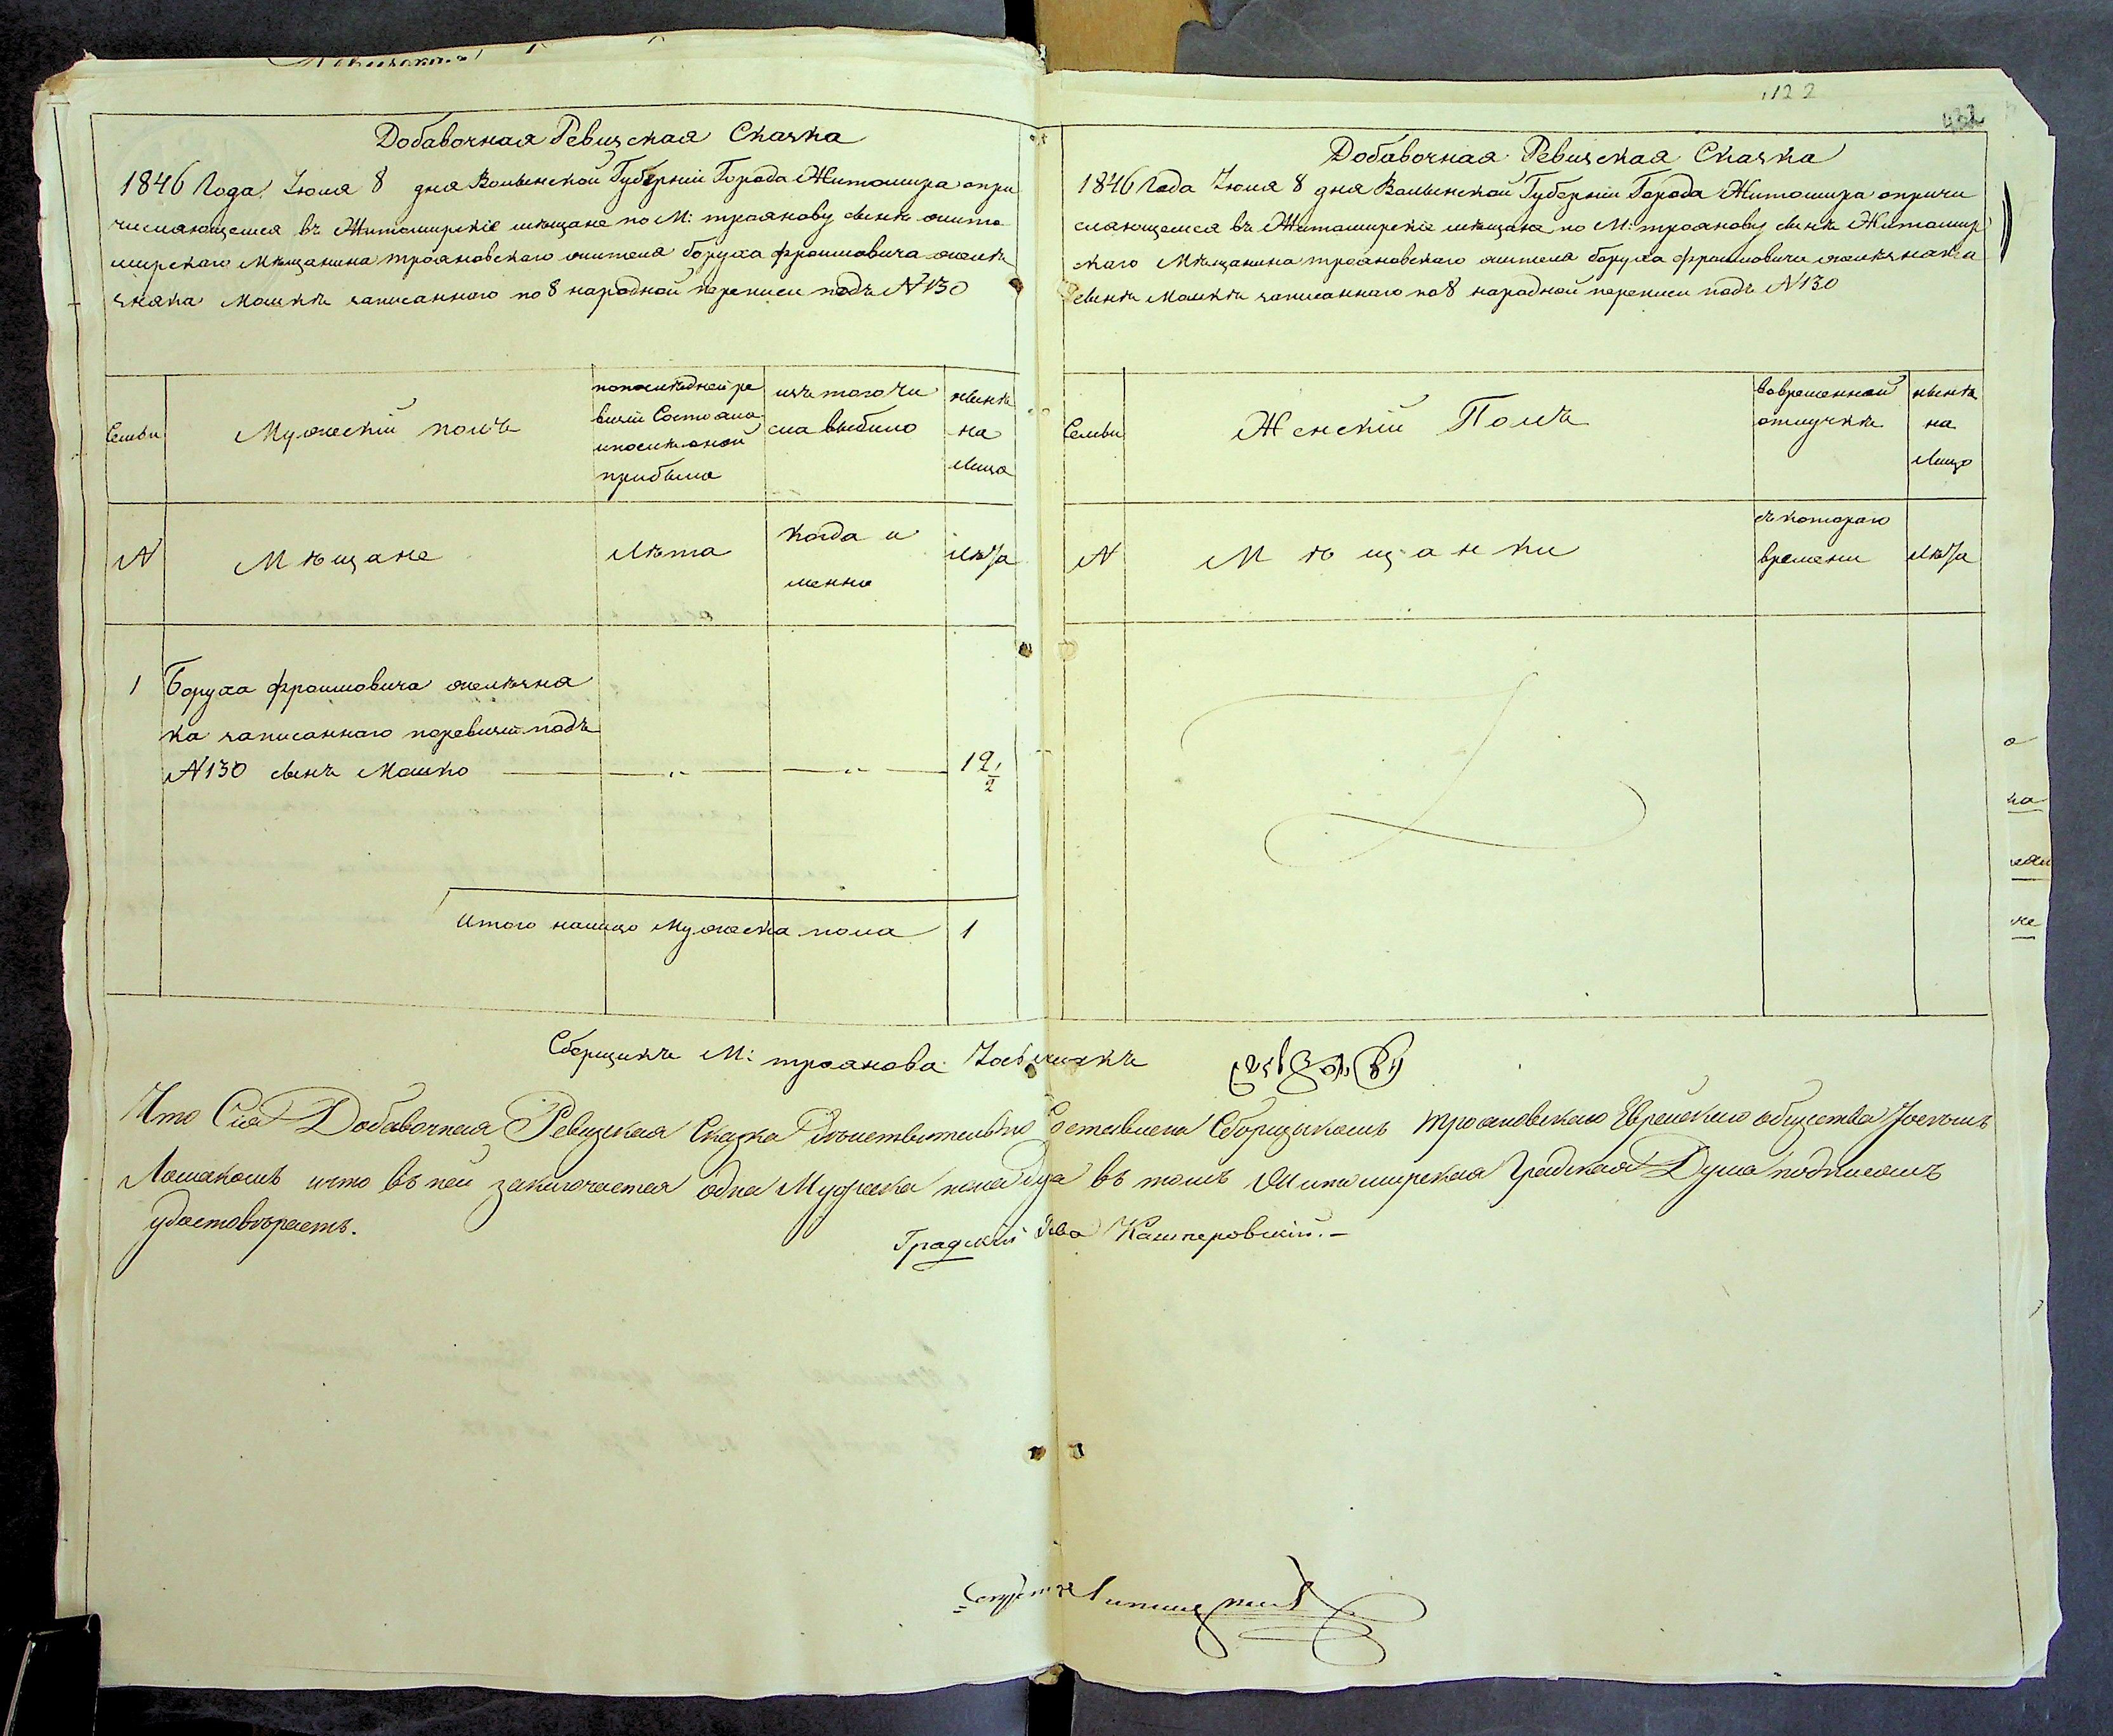 122
422
Добавочная Ревизская Сказка
1846 Года Іюля 8 дня Волынской Губерніи Города Житомира опри
числяющемся въ Житомирскіе мѣщане по М: троянову сынѣ жито
мирскаго Мѣщанина трояновскаго жителя боруха фроимовича желѣ
зняка Машкѣ записаннаго по 8 народной переписи подъ N 130
Семьи
Мужескій полъ
попослѣдней ре
визіи Состояло
ипослѣ оной
прибыло
изъ того чи
сла выбыло
нынѣ
на
лицо
N
Мѣщане
Лѣта
когда и
менно
Лѣта
1 Боруха фроимовича желѣзня
ка записаннаго поревизіи подъ
N 130 сынъ Машко — " — " — 12 1/2
Итого налицо Мужеска пола 1
Добавочная Ревизская Сказка
1846 Года Іюля 8 дня Волынской Губерніи Города Житомира опричи
сляющемся въ Житомирскіе мѣщане по М: троянову сынѣ Житомир
скаго Мѣщанина трояновскаго жителя боруха фроимовича желѣзняка
сынѣ Машкѣ записаннаго по 8 народной переписи подъ N 130
Семьи
Женскій Полъ
вовременной
отлучкѣ
нынѣ
на
лицо
N
Мѣщанки
съ котораго
времени
Лѣта
Сборщикъ М: троянова
Что Сія Добавочная Ревизская Сказка дѣйствительно Составлена Сборщикомъ трояновскаго Еврейскаго общества
Ломакомъ и что въ ней заключается одна Мужеска пола душа въ томъ Житомирская Градская Дума подписомъ
удостовѣряетъ.
Градскій Глава Кашперовскій.